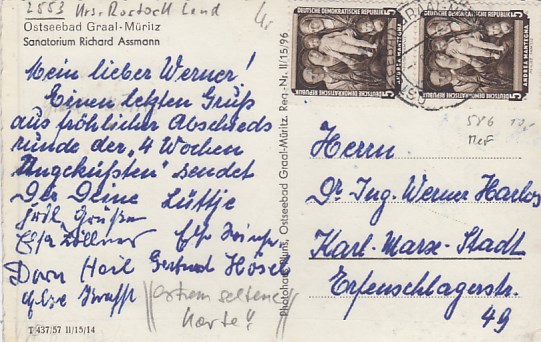 2553 Krs. Rostock Land
Ostseebad Graal-Müritz
Sanatorium Richard Assmann
Mein lieber Werner!
Einen letzten Gruß
aus fröhlicher Abschieds
runde der "4 Wochen
Ungeküßten" sendet
Dir Deine Lüttje
Grüßen
Zöllner
Dora Heil Gertrud Hösel
extrem seltene
Karte!
T 437/57 II/15/14
Photohaus Blunk, Ostseebad Graal-Müritz. Reg.-Nr. II/15/96
DEUTSCHE DEMOKRATISCHE REPUBLIK
ANDREA MANTEGNA
5
DEUTSCHE DEMOKRATISCHE REPUBLIK
ANDREA MANTEGNA
5
586
Herrn
Dr. Ing. Werner Harlos
Karl-Marx-Stadt
Erfenschlagerstr.
49